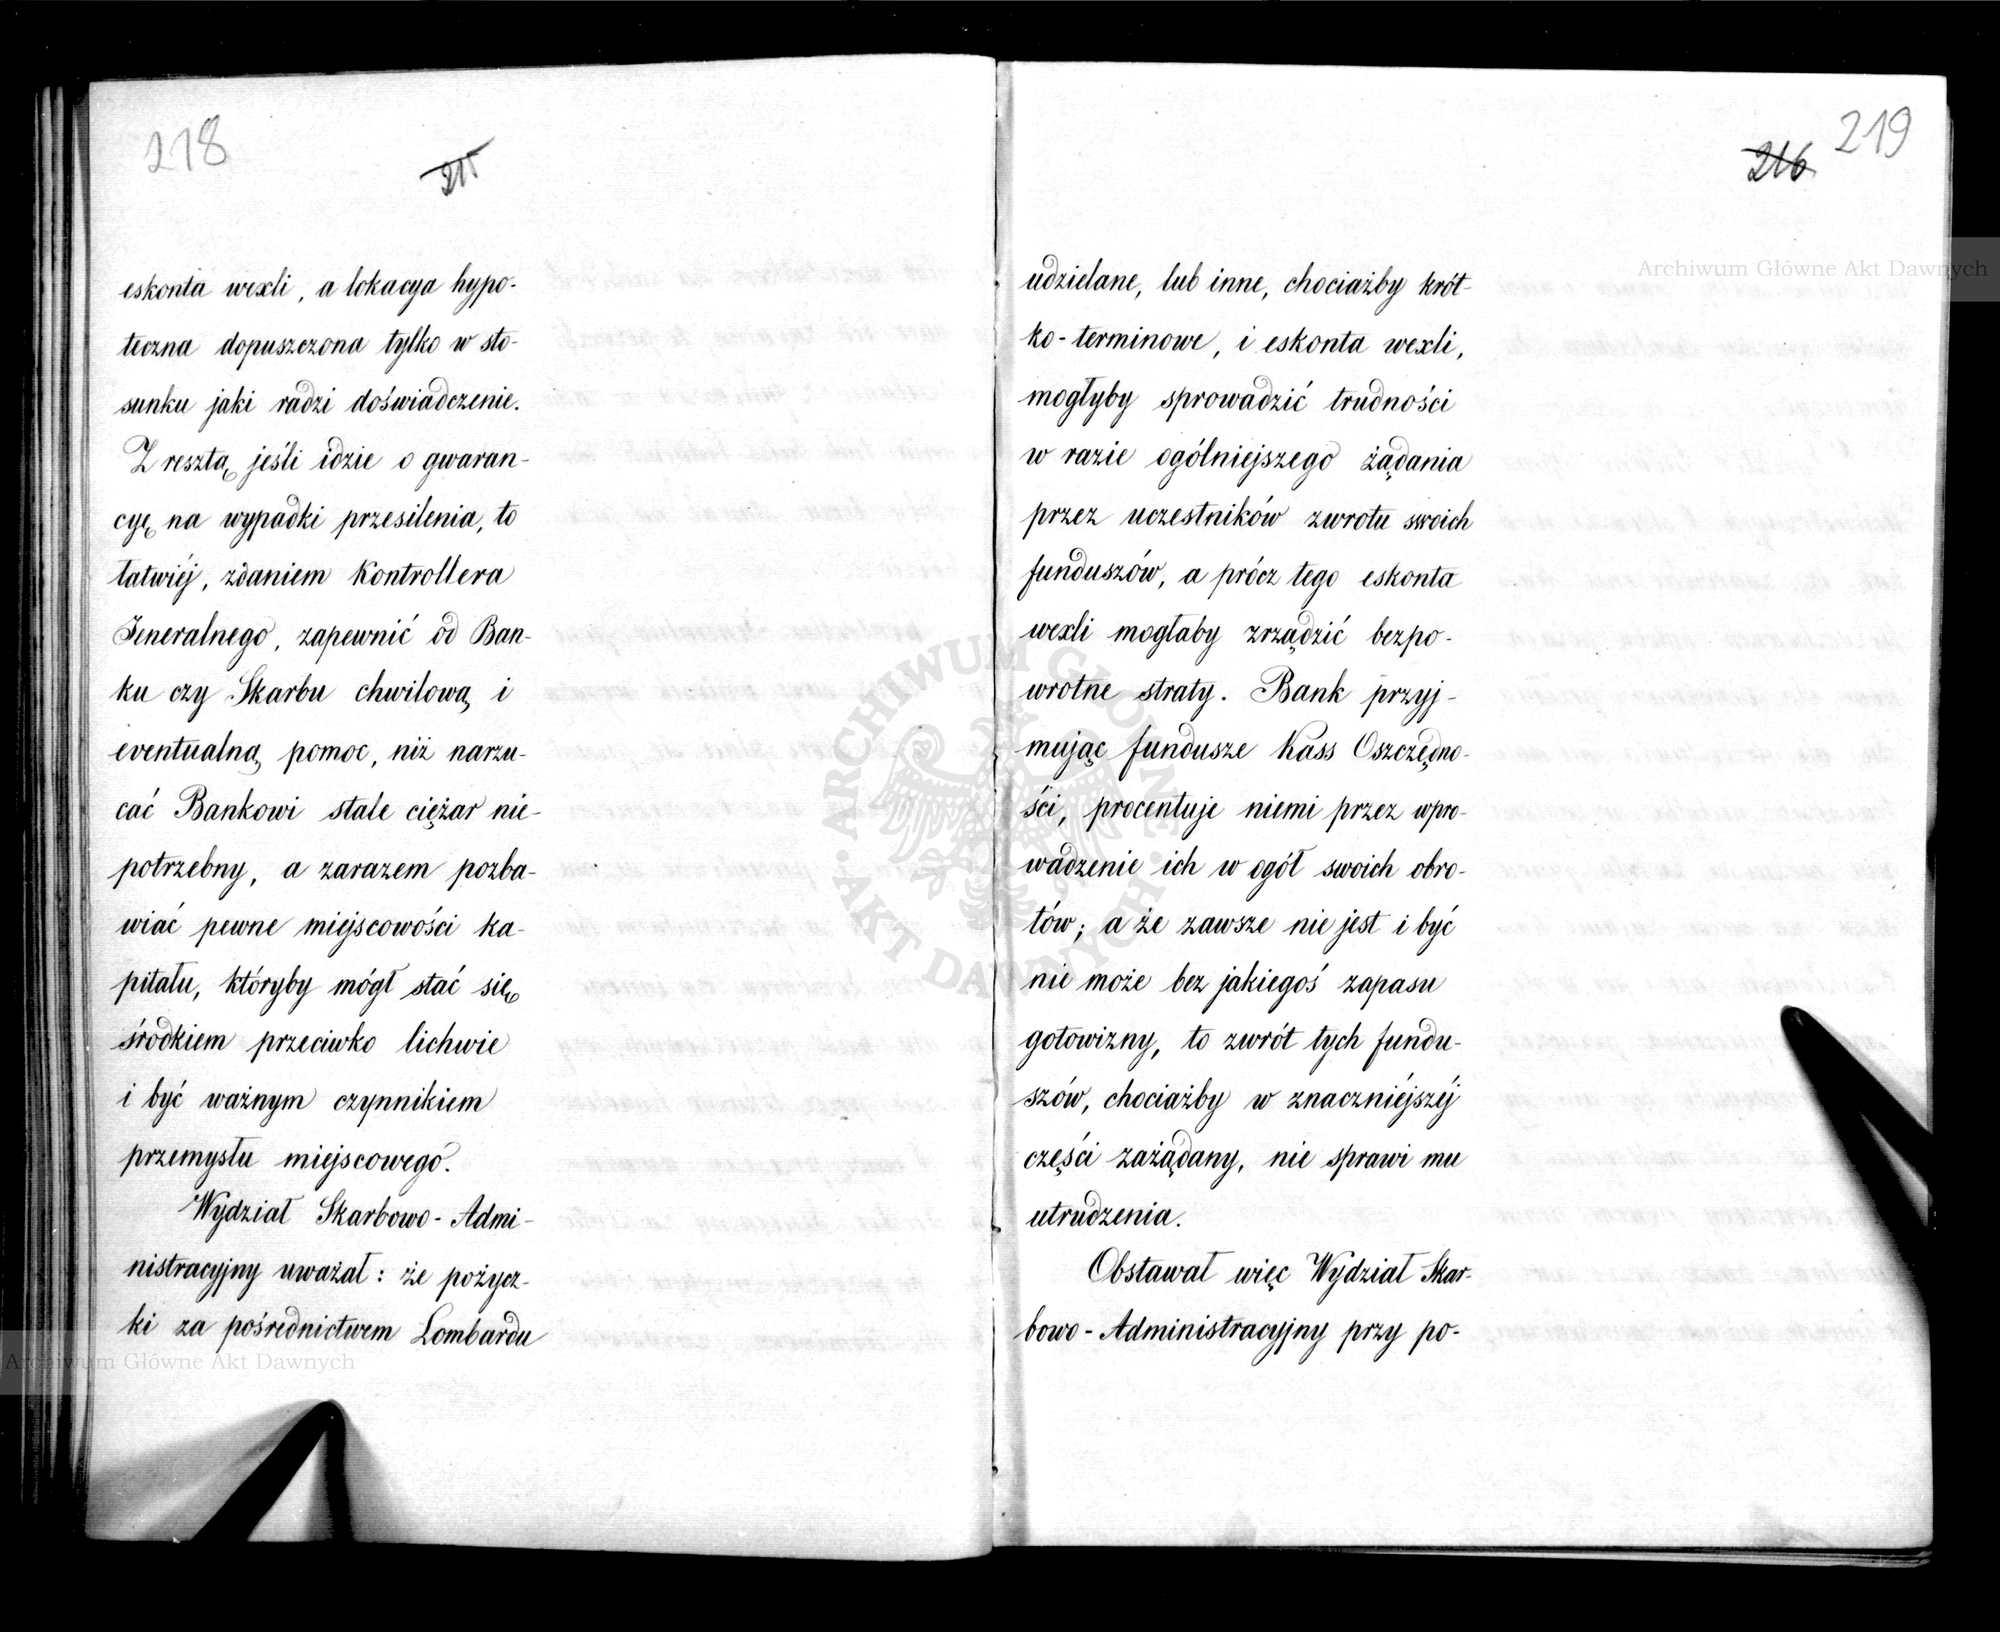 218
215
eskonta wexli, a lokacya hypo-
teczna dopuszczona tylko w sto-
sunku jaki radzi doświadczenie.
Z resztą jeśli idzie o gwaran-
cyę na wypadki przesilenia, to
łatwiéj, zdaniem Kontrollera
Jeneralnego, zapewnić od Ban-
ku czy Skarbu chwilową i
eventualną pomoc, niż narzu-
cać Bankowi stale ciężar nie-
potrzebny, a zarazem pozba-
wiać pewne miejscowości ka-
pitału, któryby mógł stać się
środkiem przeciwko lichwie
i być ważnym czynnikiem
przemysłu miejscowego.
Wydział Skarbowo-Admi-
nistracyjny uważał: że pożycz-
ki za pośrednictwem Lombardu
Archiwum Główne Akt Dawnych
219
216
Archiwum Główne Akt Dawnych
udzielane, lub inne, chociażby krót-
ko-terminowe, i eskonta wexli,
mogłyby sprowadzić trudności
w razie ogólniejszego żądania
przez uczestników zwrotu swoich
funduszów, a prócz tego eskonta
wexli mogłaby zrządzić bezpo-
wrotne straty. Bank przyj-
mując fundusze Kass Oszczędno-
ści, procentuje niemi przez wpro-
wadzenie ich w ogół swoich obro-
tów; a że zawsze nie jest i być
nie może bez jakiegoś zapasu
gotowizny, to zwrót tych fundu-
szów, chociażby w znaczniéjszéj
części zażądany, nie sprawi mu
utrudzenia.
Obstawał więc Wydział Skar-
bowo-Administracyjny przy po-
ARCHIWUM GŁÓWNE
AKT DAWNYCH